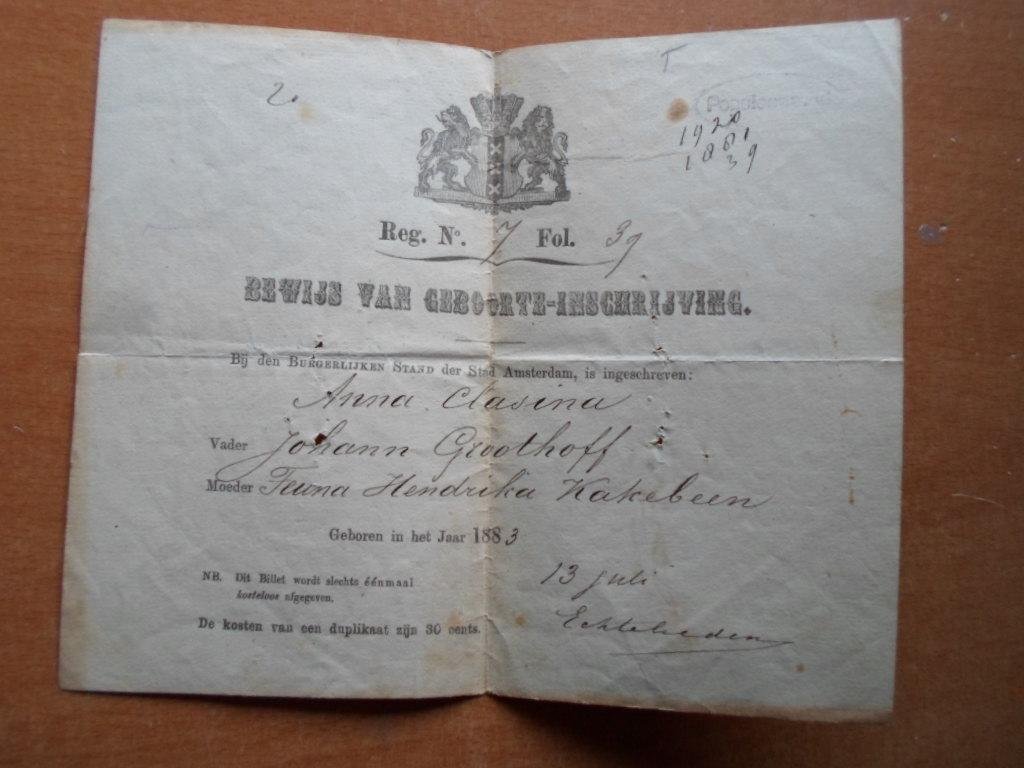 2.
T
1920
1881
39
Reg. No. 7 Fol. 39
BEWIJS VAN GEBOORTE-INSCHRIJVING.
Bij den BURGERLIJKEN STAND der Stad Amsterdam, is ingeschreven:
Anna Clasina
Vader Johann Groothoff
Moeder Teuna Hendrika Kakebeen
Geboren in het Jaar 1883
13 juli
NB. Dit Billet wordt slechts éénmaal
kosteloos afgegeven.
De kosten van een duplikaat zijn 30 cents.